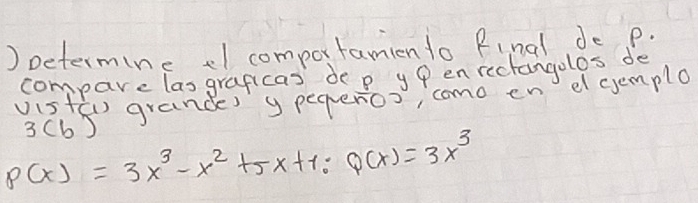 ) Determine el comportamiento final de P.
compare las graficas de p y Q en rectangulos de
vistas grandes y pequeños, como en el ejemplo
3(b)
P(x) = 3x³ - x² + 5x + 1: Q(x) = 3x³